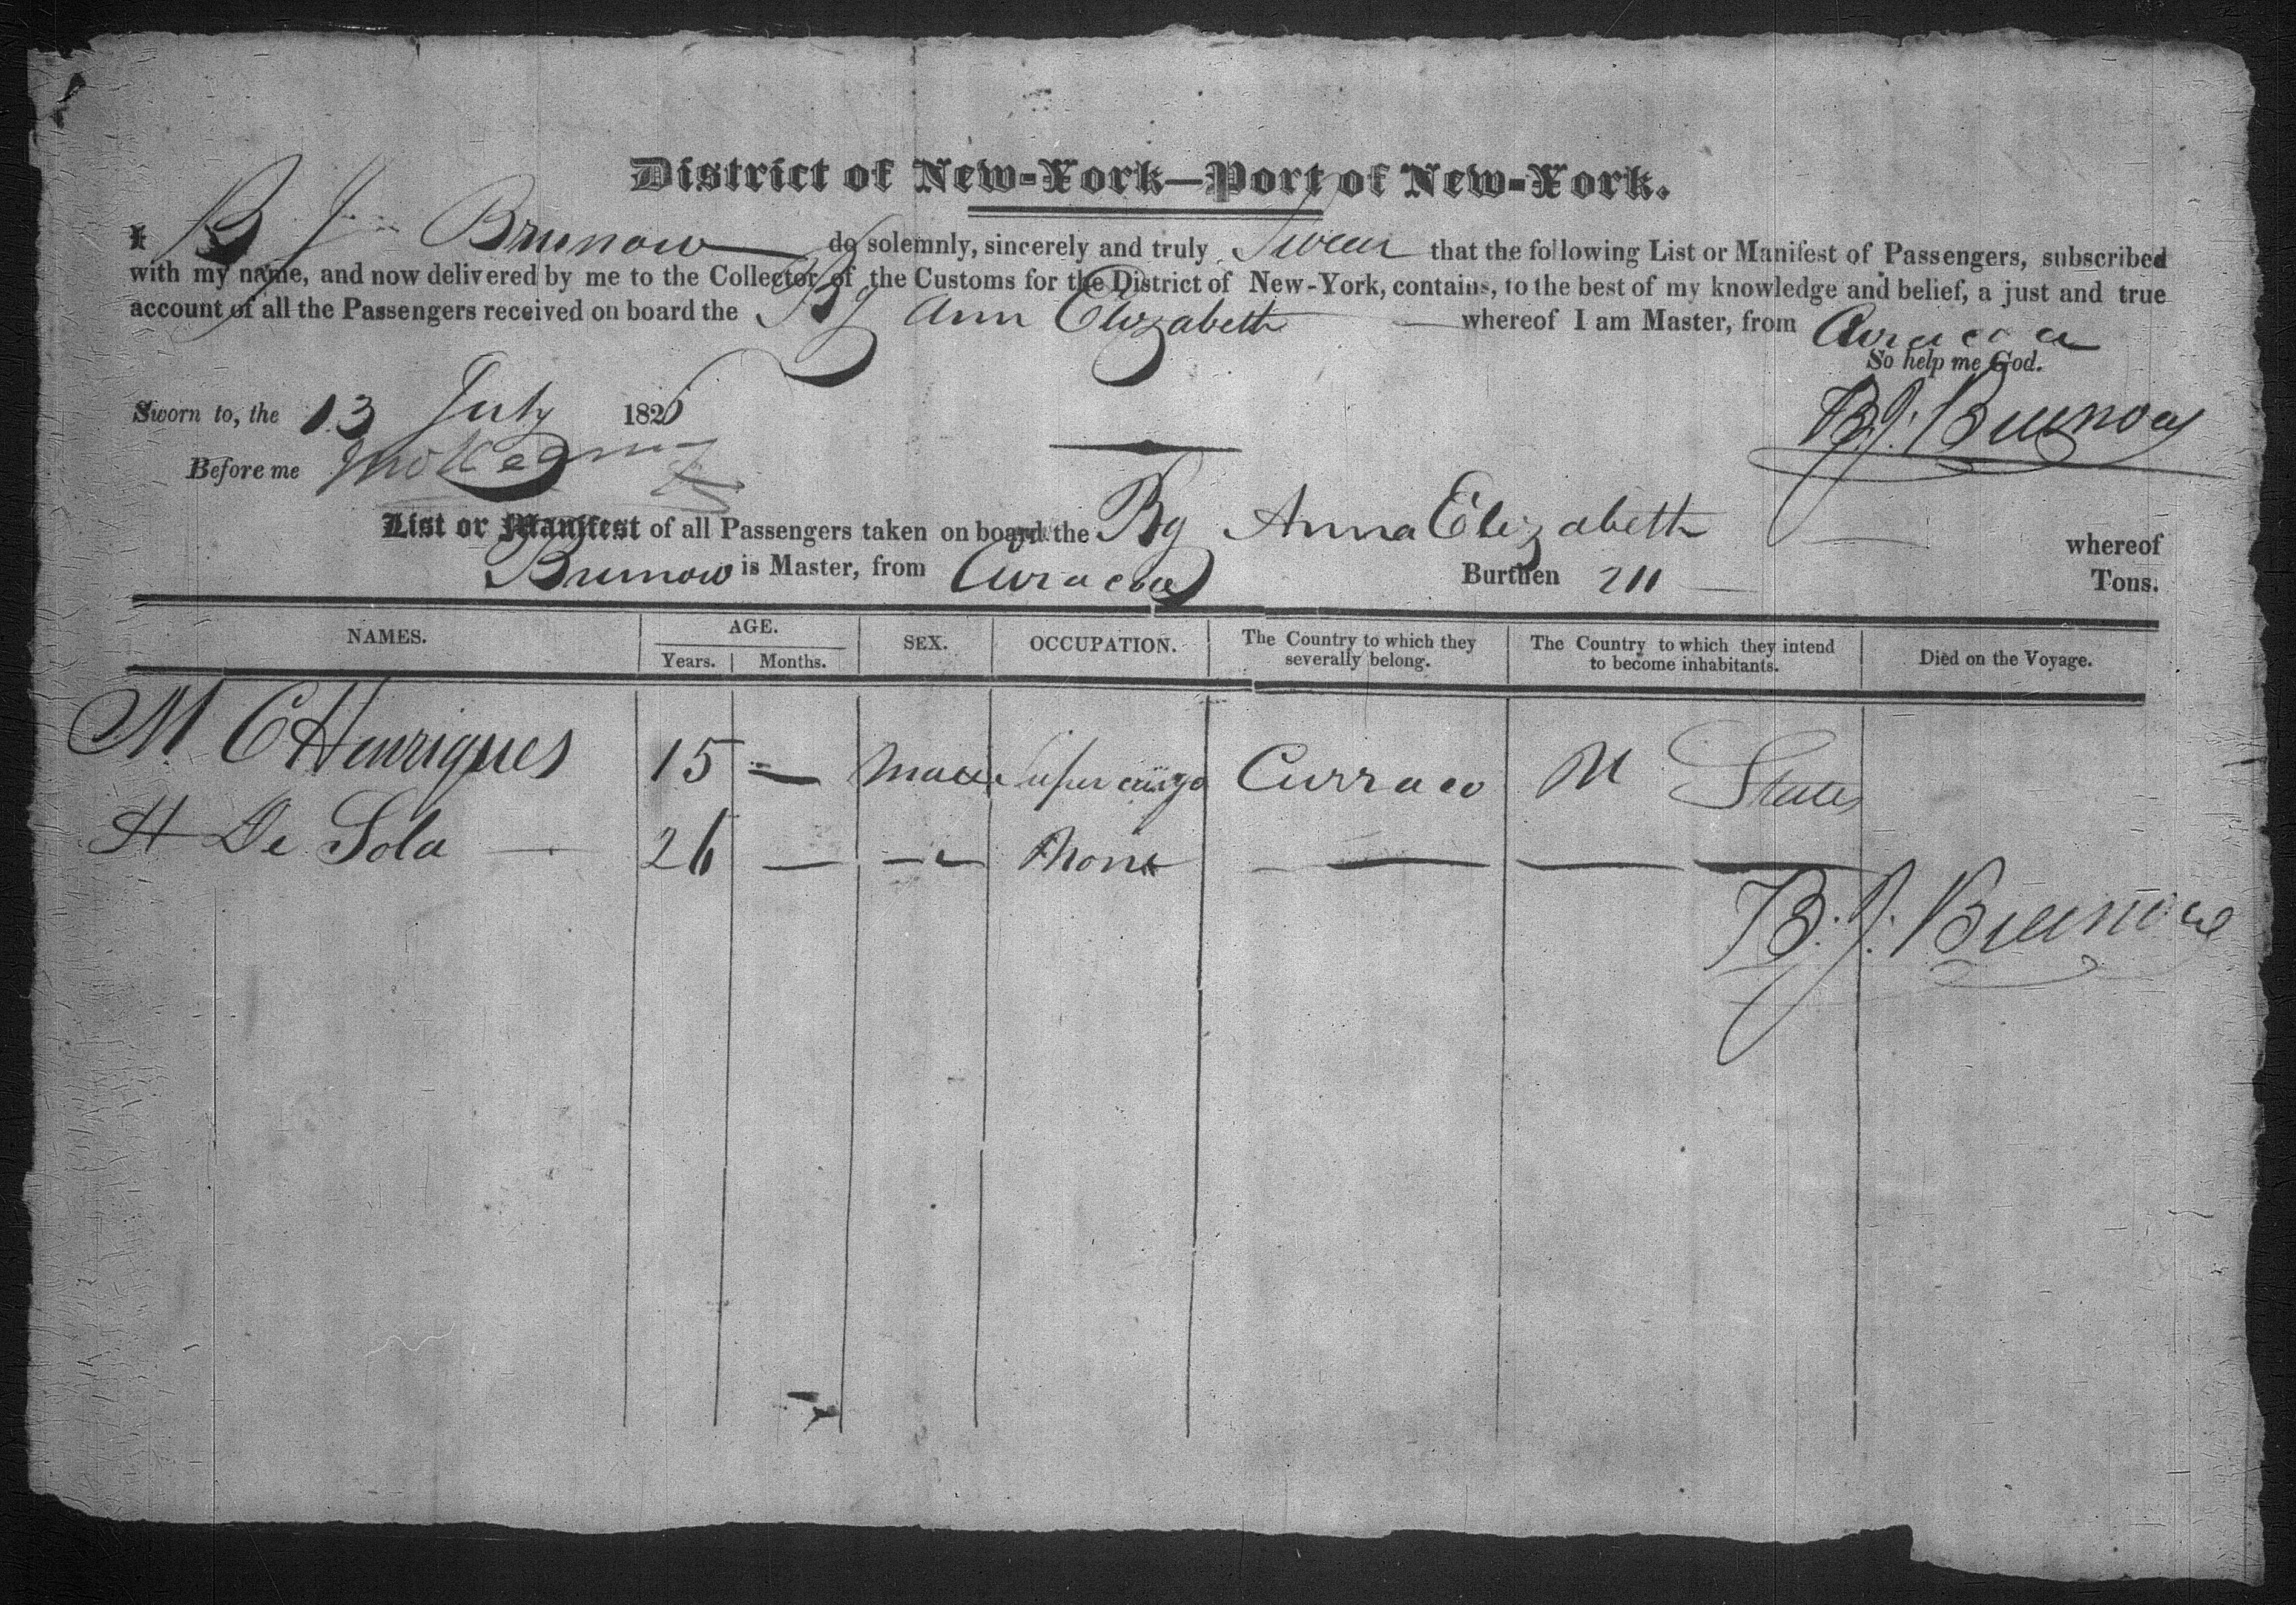 District of New-York—Port of New-York.
I B J Brunow do solemnly, sincerely and truly Swear that the following List or Manifest of Passengers, subscribed
with my name, and now delivered by me to the Collector of the Customs for the District of New-York, contains, to the best of my knowledge and belief, a just and true
account of all the Passengers received on board the Bg Ann Elizabeth whereof I am Master, from Curacoa
So help me God.
Sworn to, the 13 July 182
B. J. Brunow
Before me
List or Manifest of all Passengers taken on board the Bg Anna Elizabeth whereof
Brunow is Master, from Curacoa Burthen 211 Tons.
NAMES. AGE. Years. Months. SEX. OCCUPATION. The Country to which they severally belong. The Country to which they intend to become inhabitants. Died on the Voyage.
M C Henriques 15 — Male Supercargo Curraco U States
H De Sola — 26 — — None — — —
B. J. Brunow